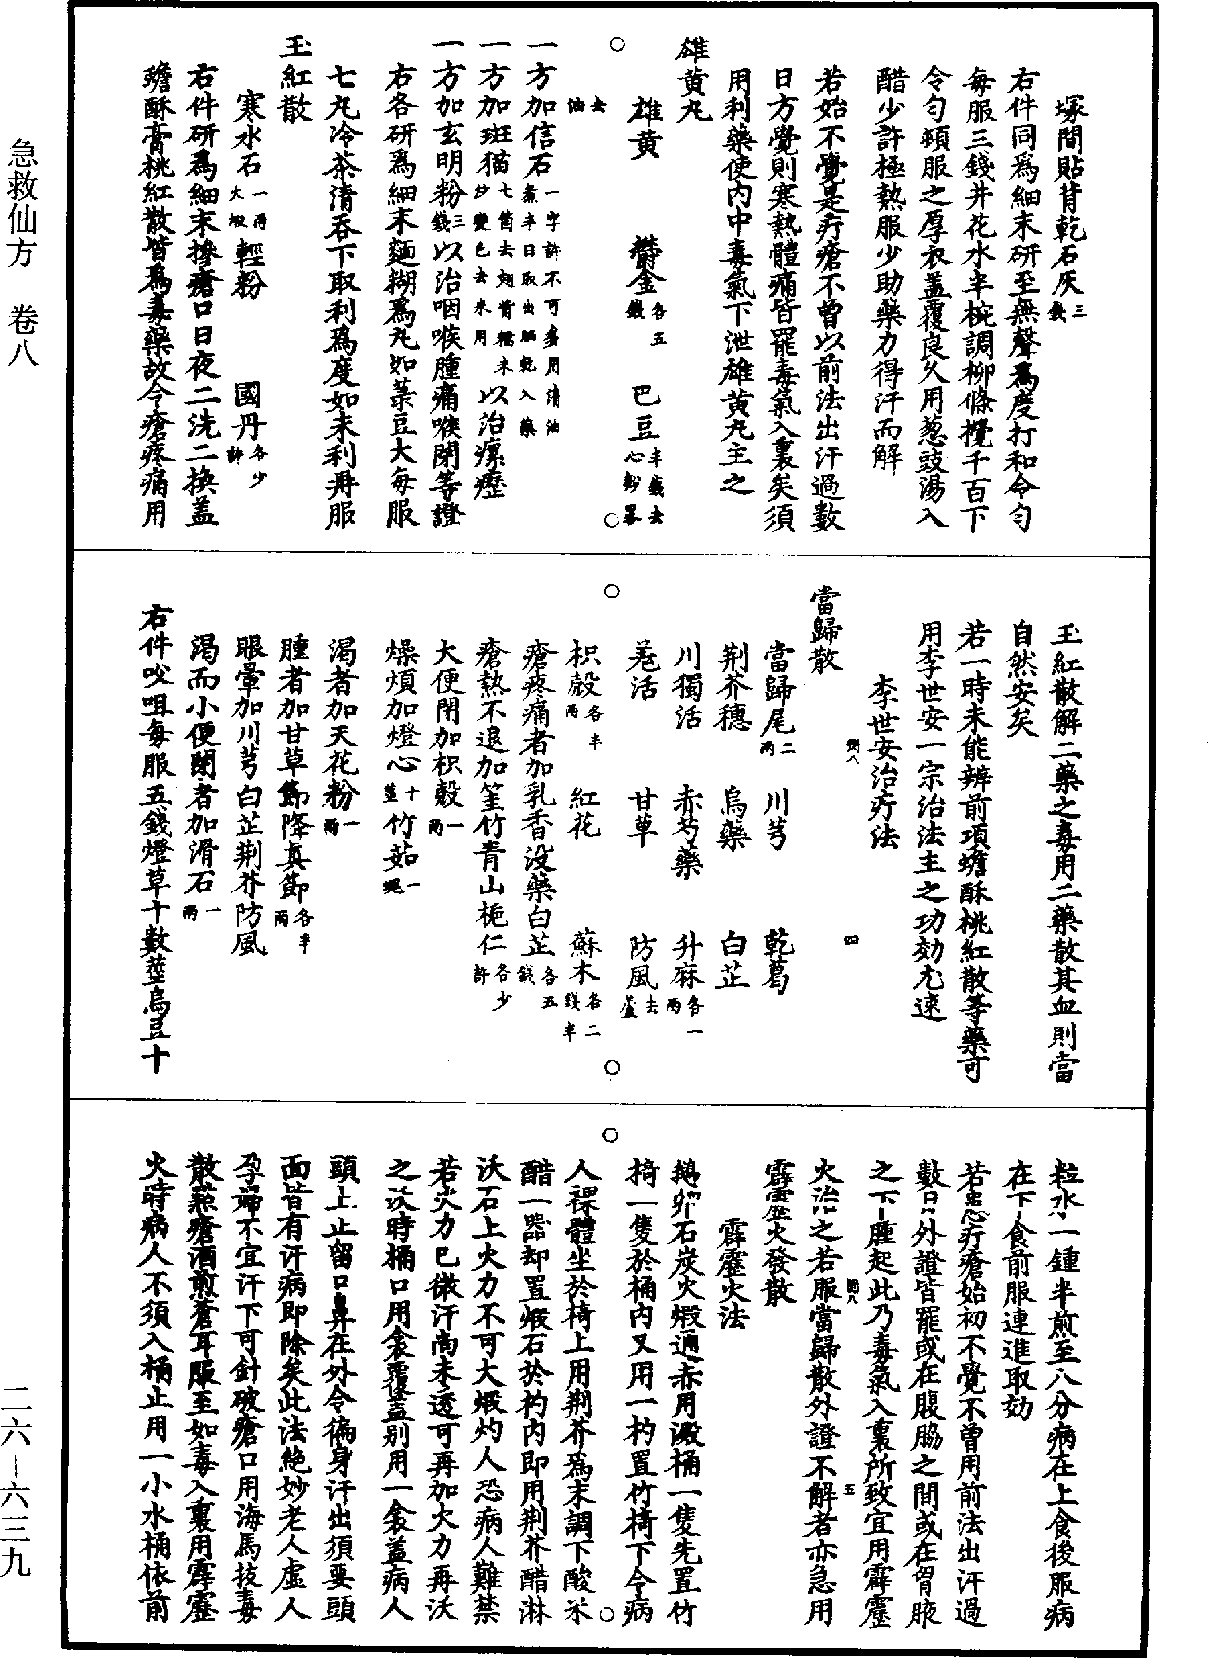 塚間貼背乾石灰三錢
右件同爲細末研至無聲爲度打和令勻
每服三錢井花水半椀調柳條攪千百下
令勻頓服之厚衣蓋覆良久用葱豉湯入
醋少許極熱服少助藥力得汗而解
若始不覺是疔瘡不曾以前法出汗過數
日方覺則寒熱體痛皆罷毒氣入裏矣須
用利藥使內中毒氣下泄雄黃丸主之
雄黃丸
雄黃 欝金各五錢 巴豆半錢去心
一方加信石一字許不可多用清油煮半日取出晒乾入藥去油
一方加斑猫七箇去翅背糯米炒變色去米用以治瘰癧
一方加玄明粉三錢以治咽喉腫痛喉閉等證
右各研爲細末麵糊爲丸如菉豆大每服
七丸冷茶清吞下取利爲度如未利再服
玉紅散
寒水石一兩火煅 輕粉 國丹各少許
右件研爲細末摻瘡口日夜二洗二換蓋
蟾酥膏桃紅散皆爲毒藥故令瘡疼痛用
玉紅散解二藥之毒用二藥散其血則當
自然安矣
若一時未能辨前項蟾酥桃紅散等藥可
用李世安一宗治法主之功効尤速
李世安治疔法
當歸散
當歸尾二兩 川芎 乾葛
荆芥穗 烏藥 白芷
川獨活 赤芍藥 升麻各一兩
羌活 甘草 防風去蘆
枳殼各半兩 紅花 蘇木各二錢半
瘡疼痛者加乳香沒藥白芷各五錢
瘡熱不退加筀竹青山梔仁各少許
大便閉加枳殼一兩
燥煩加燈心十莖竹茹一
渴者加天花粉一兩
腫者加甘草節降真節各半兩
眼暈加川芎白芷荆芥防風
渴而小便閉者加滑石一兩
右件㕮咀每服五錢燈草十數莖烏豆十
粒水一鍾半煎至八分病在上食後服病
在下食前服連進取効
若患疔瘡始初不覺不曾用前法出汗過
數日外證皆罷或在腹脇之間或在胷腋
之下腫起此乃毒氣入裏所致宜用霹靂
火治之若服當歸散外證不解者亦急用
霹靂火發散
霹靂火法
鵝卵石炭火煅通赤用澱桶一隻先置竹
椅一隻於桶內又用一杓置竹椅下令病
人裸體坐於椅上用荆芥爲末調下酸米
醋一器却置煅石於杓內即用荆芥醋淋
沃石上火力不可大煅灼人恐病人難禁
若火力已微汗尚未透可再加火力再沃
之沃時桶口用衾覆蓋別用一衾蓋病人
頭上止留口鼻在外令徧身汗出須要頭
面皆有汗病即除矣此法絕妙老人虛人
孕婦不宜汗下可針破瘡口用海馬拔毒
散㸃瘡酒煎蒼耳服至如毒入裏用霹靂
火時病人不須入桶止用一小水桶依前
急救仙方 卷八
二六—六三九